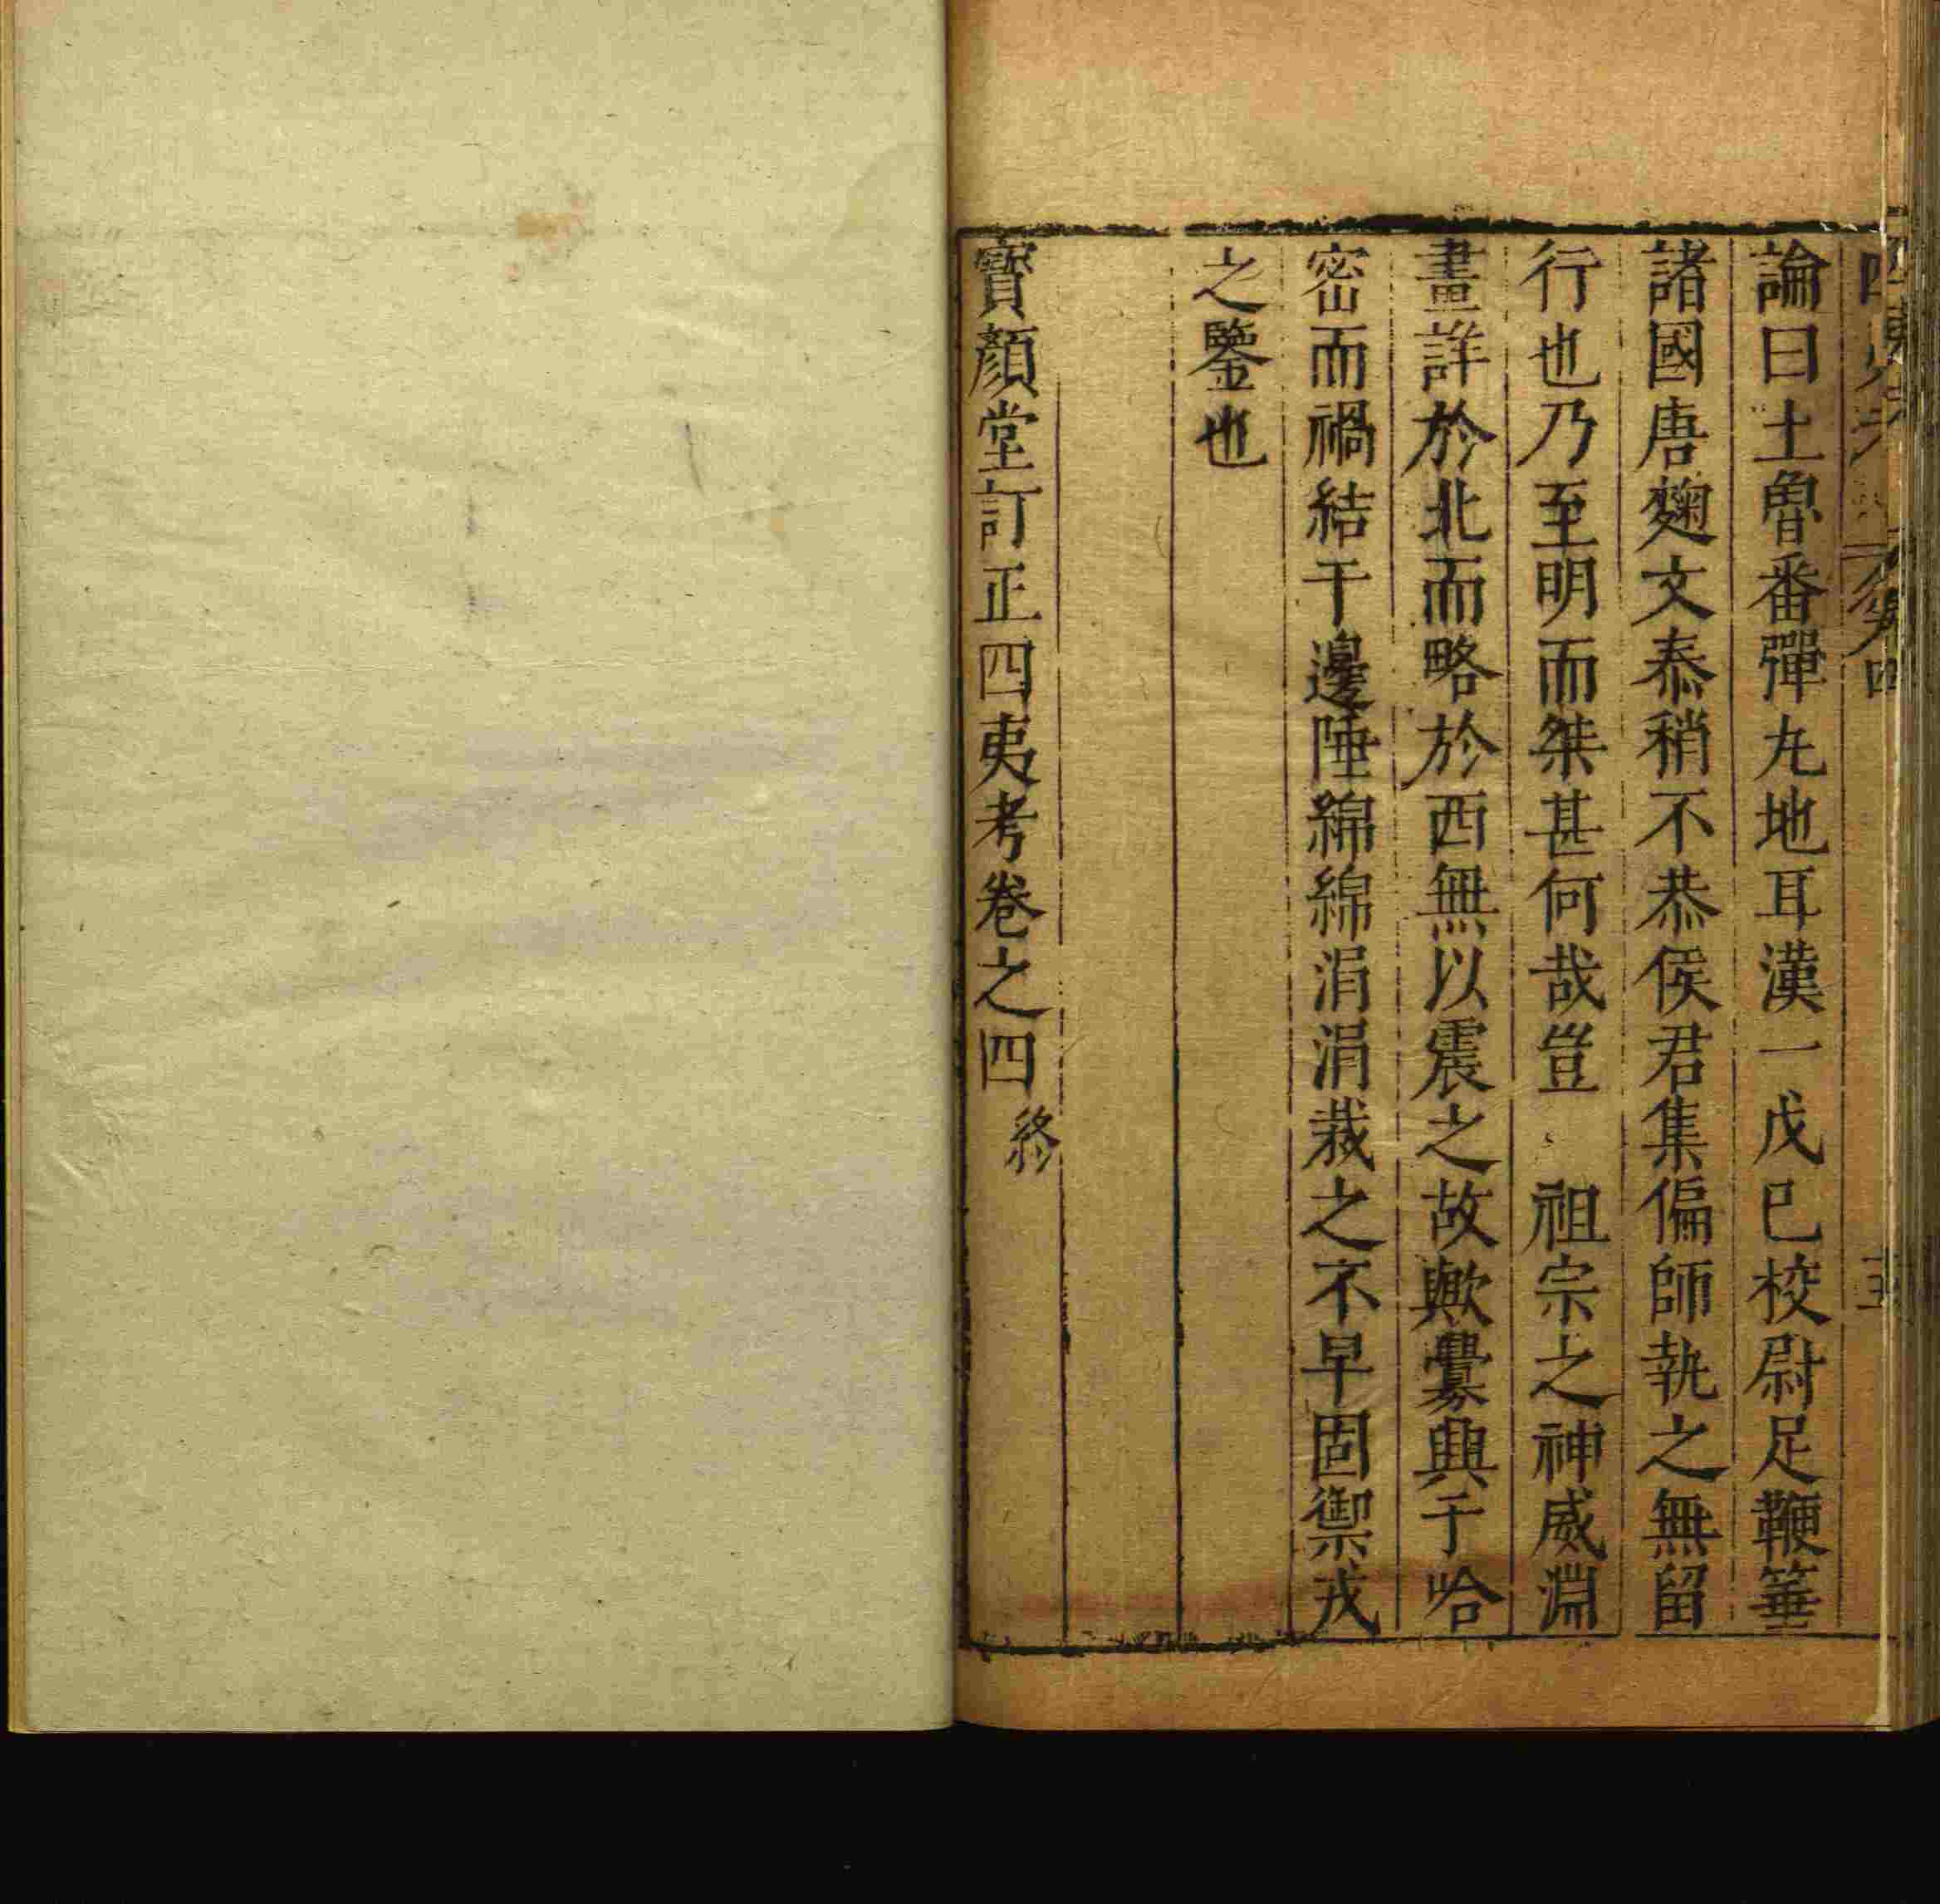 論曰土魯番彈丸地耳漢一戊巳校尉足鞭箠
諸國唐麴文泰稍不恭侯君集偏師執之無留
行也乃至明而桀甚何哉豈　祖宗之神威淵
畫詳於北而略於西無以震之故歟釁興于哈
密而禍結于邊陲綿綿涓涓栽之不早固禦戎
之鑒也
寶顏堂訂正四夷考卷之四終